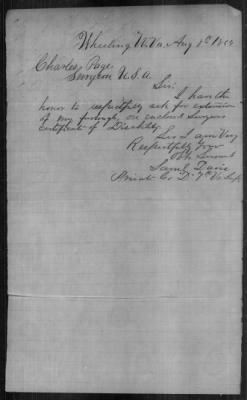 Wheeling W. Va. Aug 1st 186
Charles Page
Surgeon U.S.A.
Sir:
I have the
honor to respectfully ask for extension
of my furlough, on enclosed Surgeons
certificate of Disability.
Sir I am Very
Respectfully Your
Obt. Servant
Saml Davis
Private Co D. 7th Va Inf